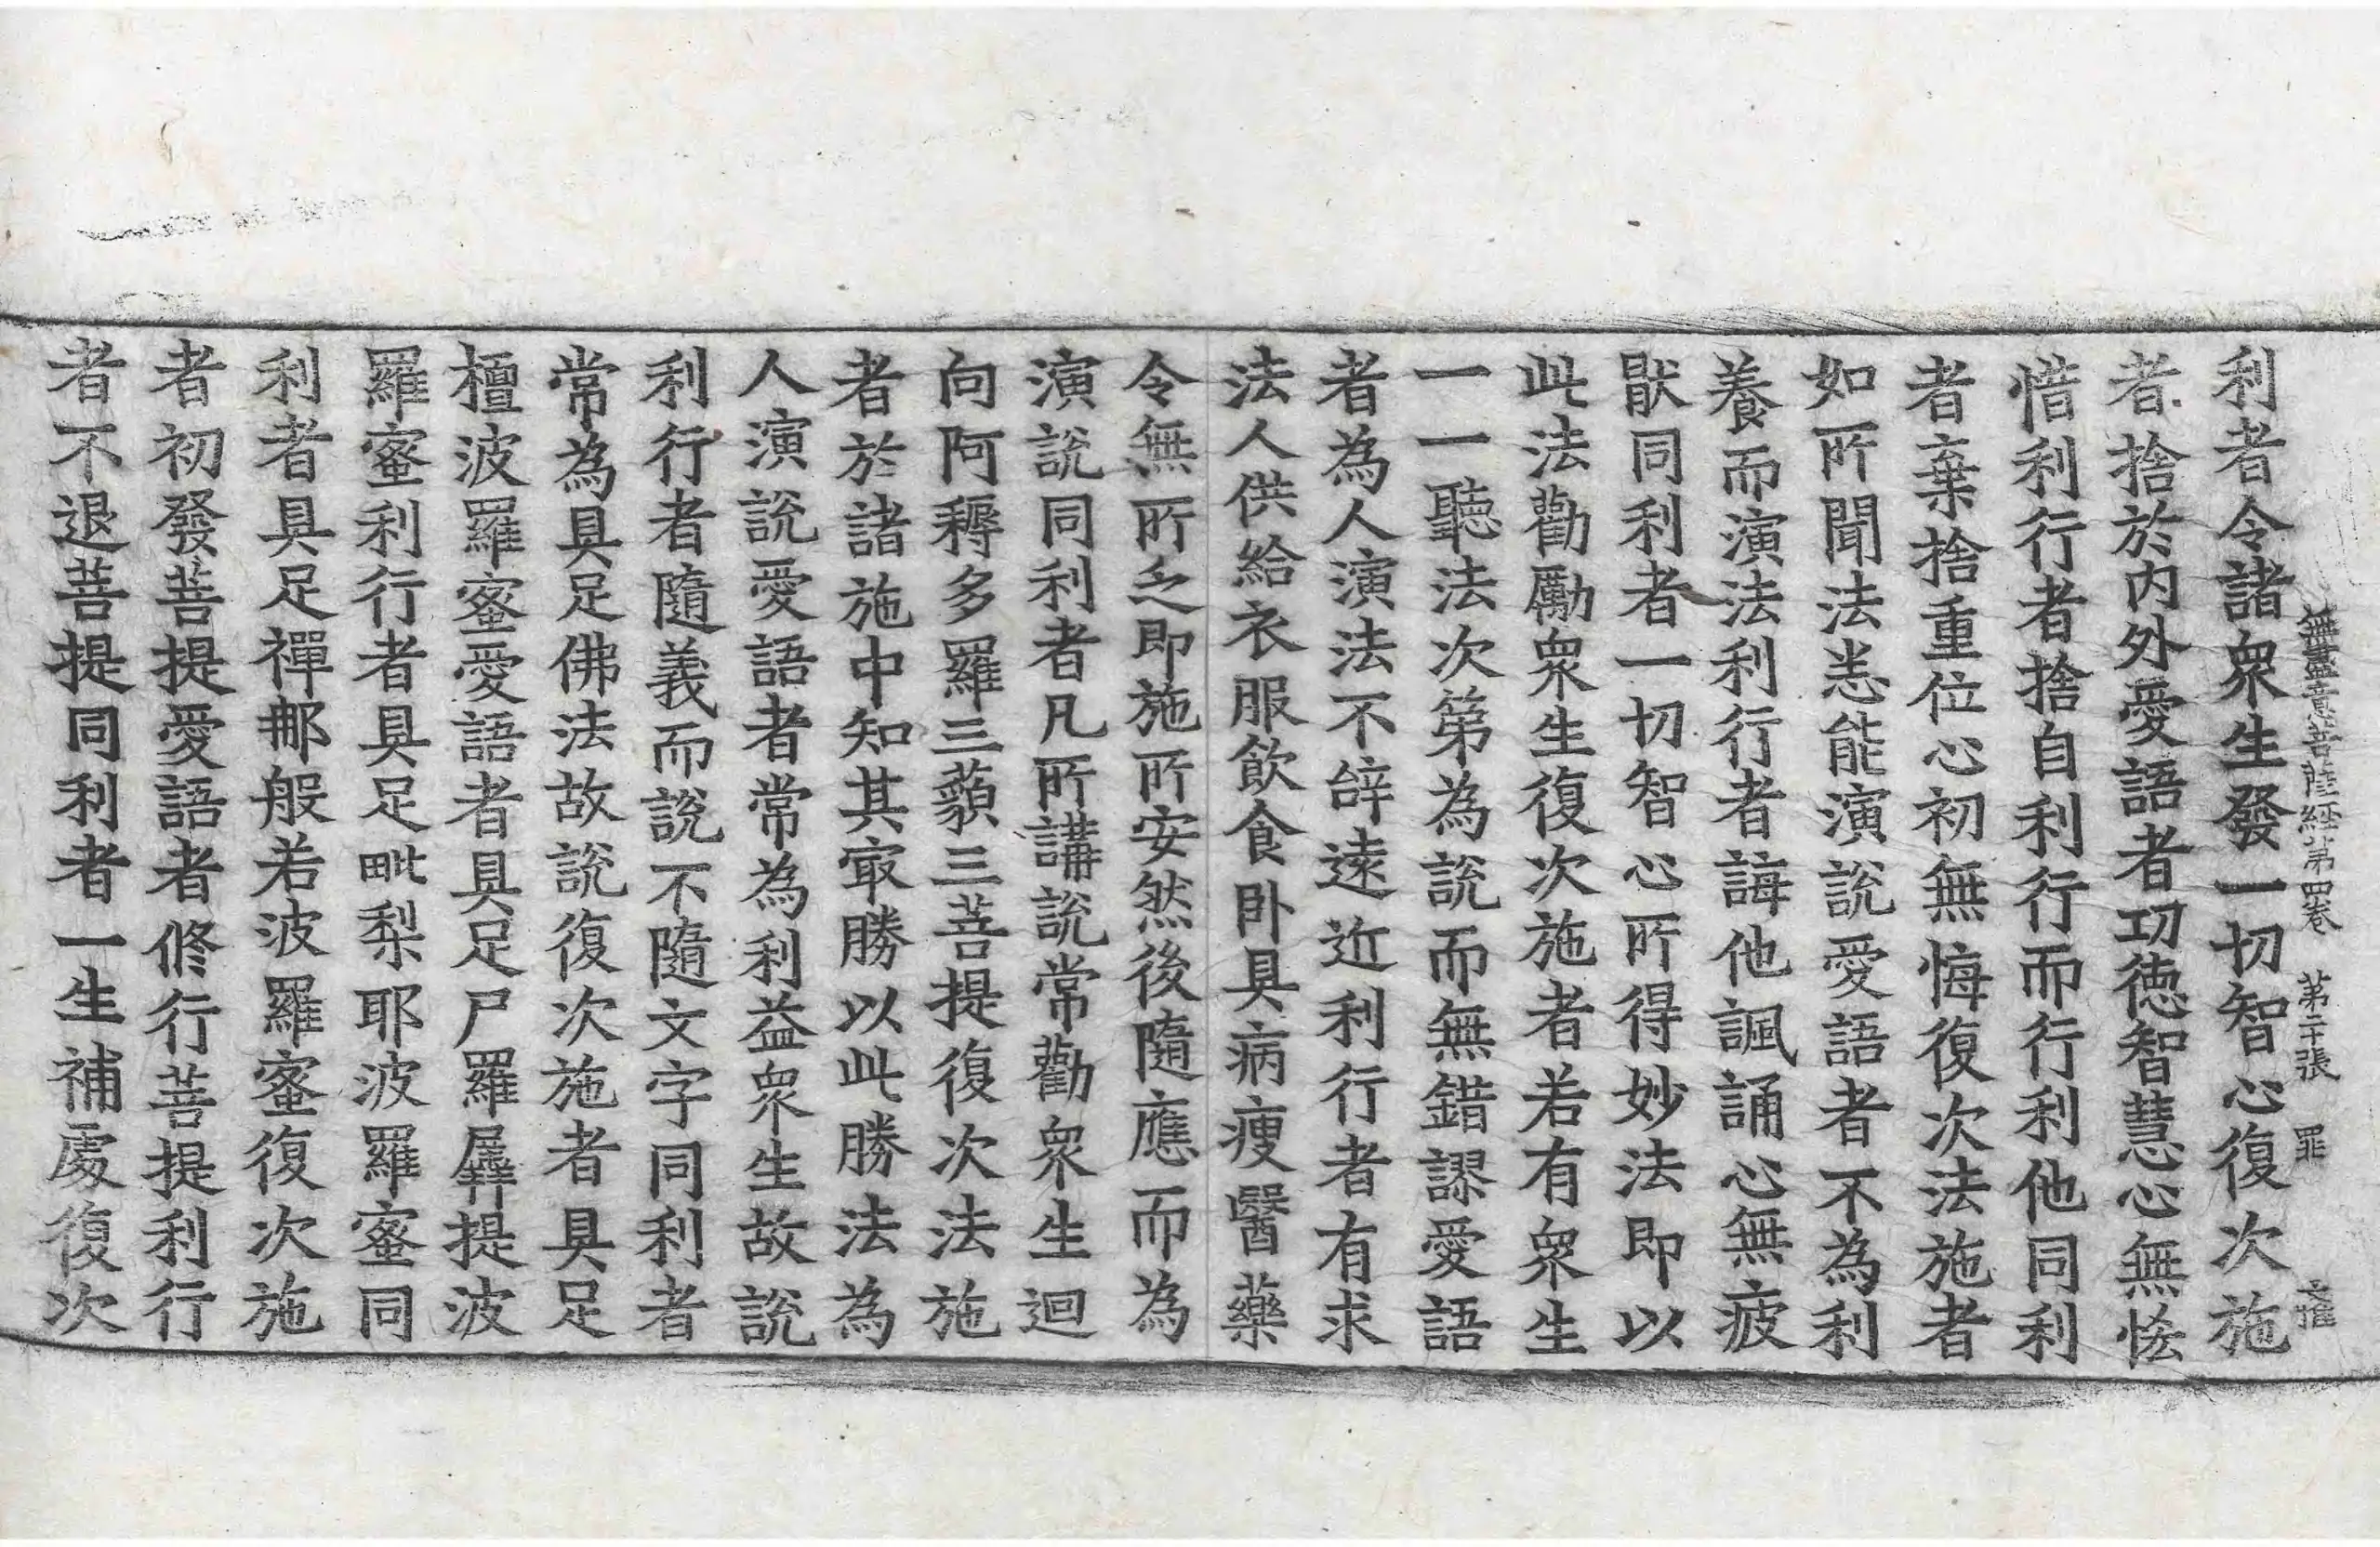 無盡意菩薩經第四卷 第二十張 罪
利者令諸衆生發一切智心復次施
者捨於內外愛語者功德智慧心無恡
惜利行者捨自利行而行利他同利
者棄捨重位心初無悔復次法施者
如所聞法恙能演說愛語者不為利
養而演法利行者誨他諷誦心無疲
猒同利者一切智心所得妙法即以
此法勸勵衆生復次施者若有衆生
一一聽法次第為說而無錯謬愛語
者為人演法不辝遠近利行者有求
法人供給衣服飲食卧具病瘦醫藥
令無所乏即施所安然後隨應而為
演說同利者凡所講說常勸衆生迴
向阿耨多羅三藐三菩提復次法施
者於諸施中知其㝡勝以此勝法為
人演說愛語者常為利益衆生故說
利行者隨義而說不隨文字同利者
常為具足佛法故說復次施者具足
檀波羅蜜愛語者具足尸羅羼提波
羅蜜利行者具足毗梨耶波羅蜜同
利者具足禪那般若波羅蜜復次施
者初發菩提愛語者修行菩提利行
者不退菩提同利者一生補處復次